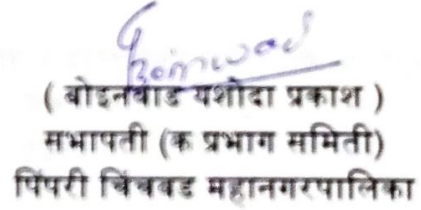 ( बोइनवाड यशोदा प्रकाश )
सभापती (क प्रभाग समिती)
पिंपरी चिंचवड महानगरपालिका